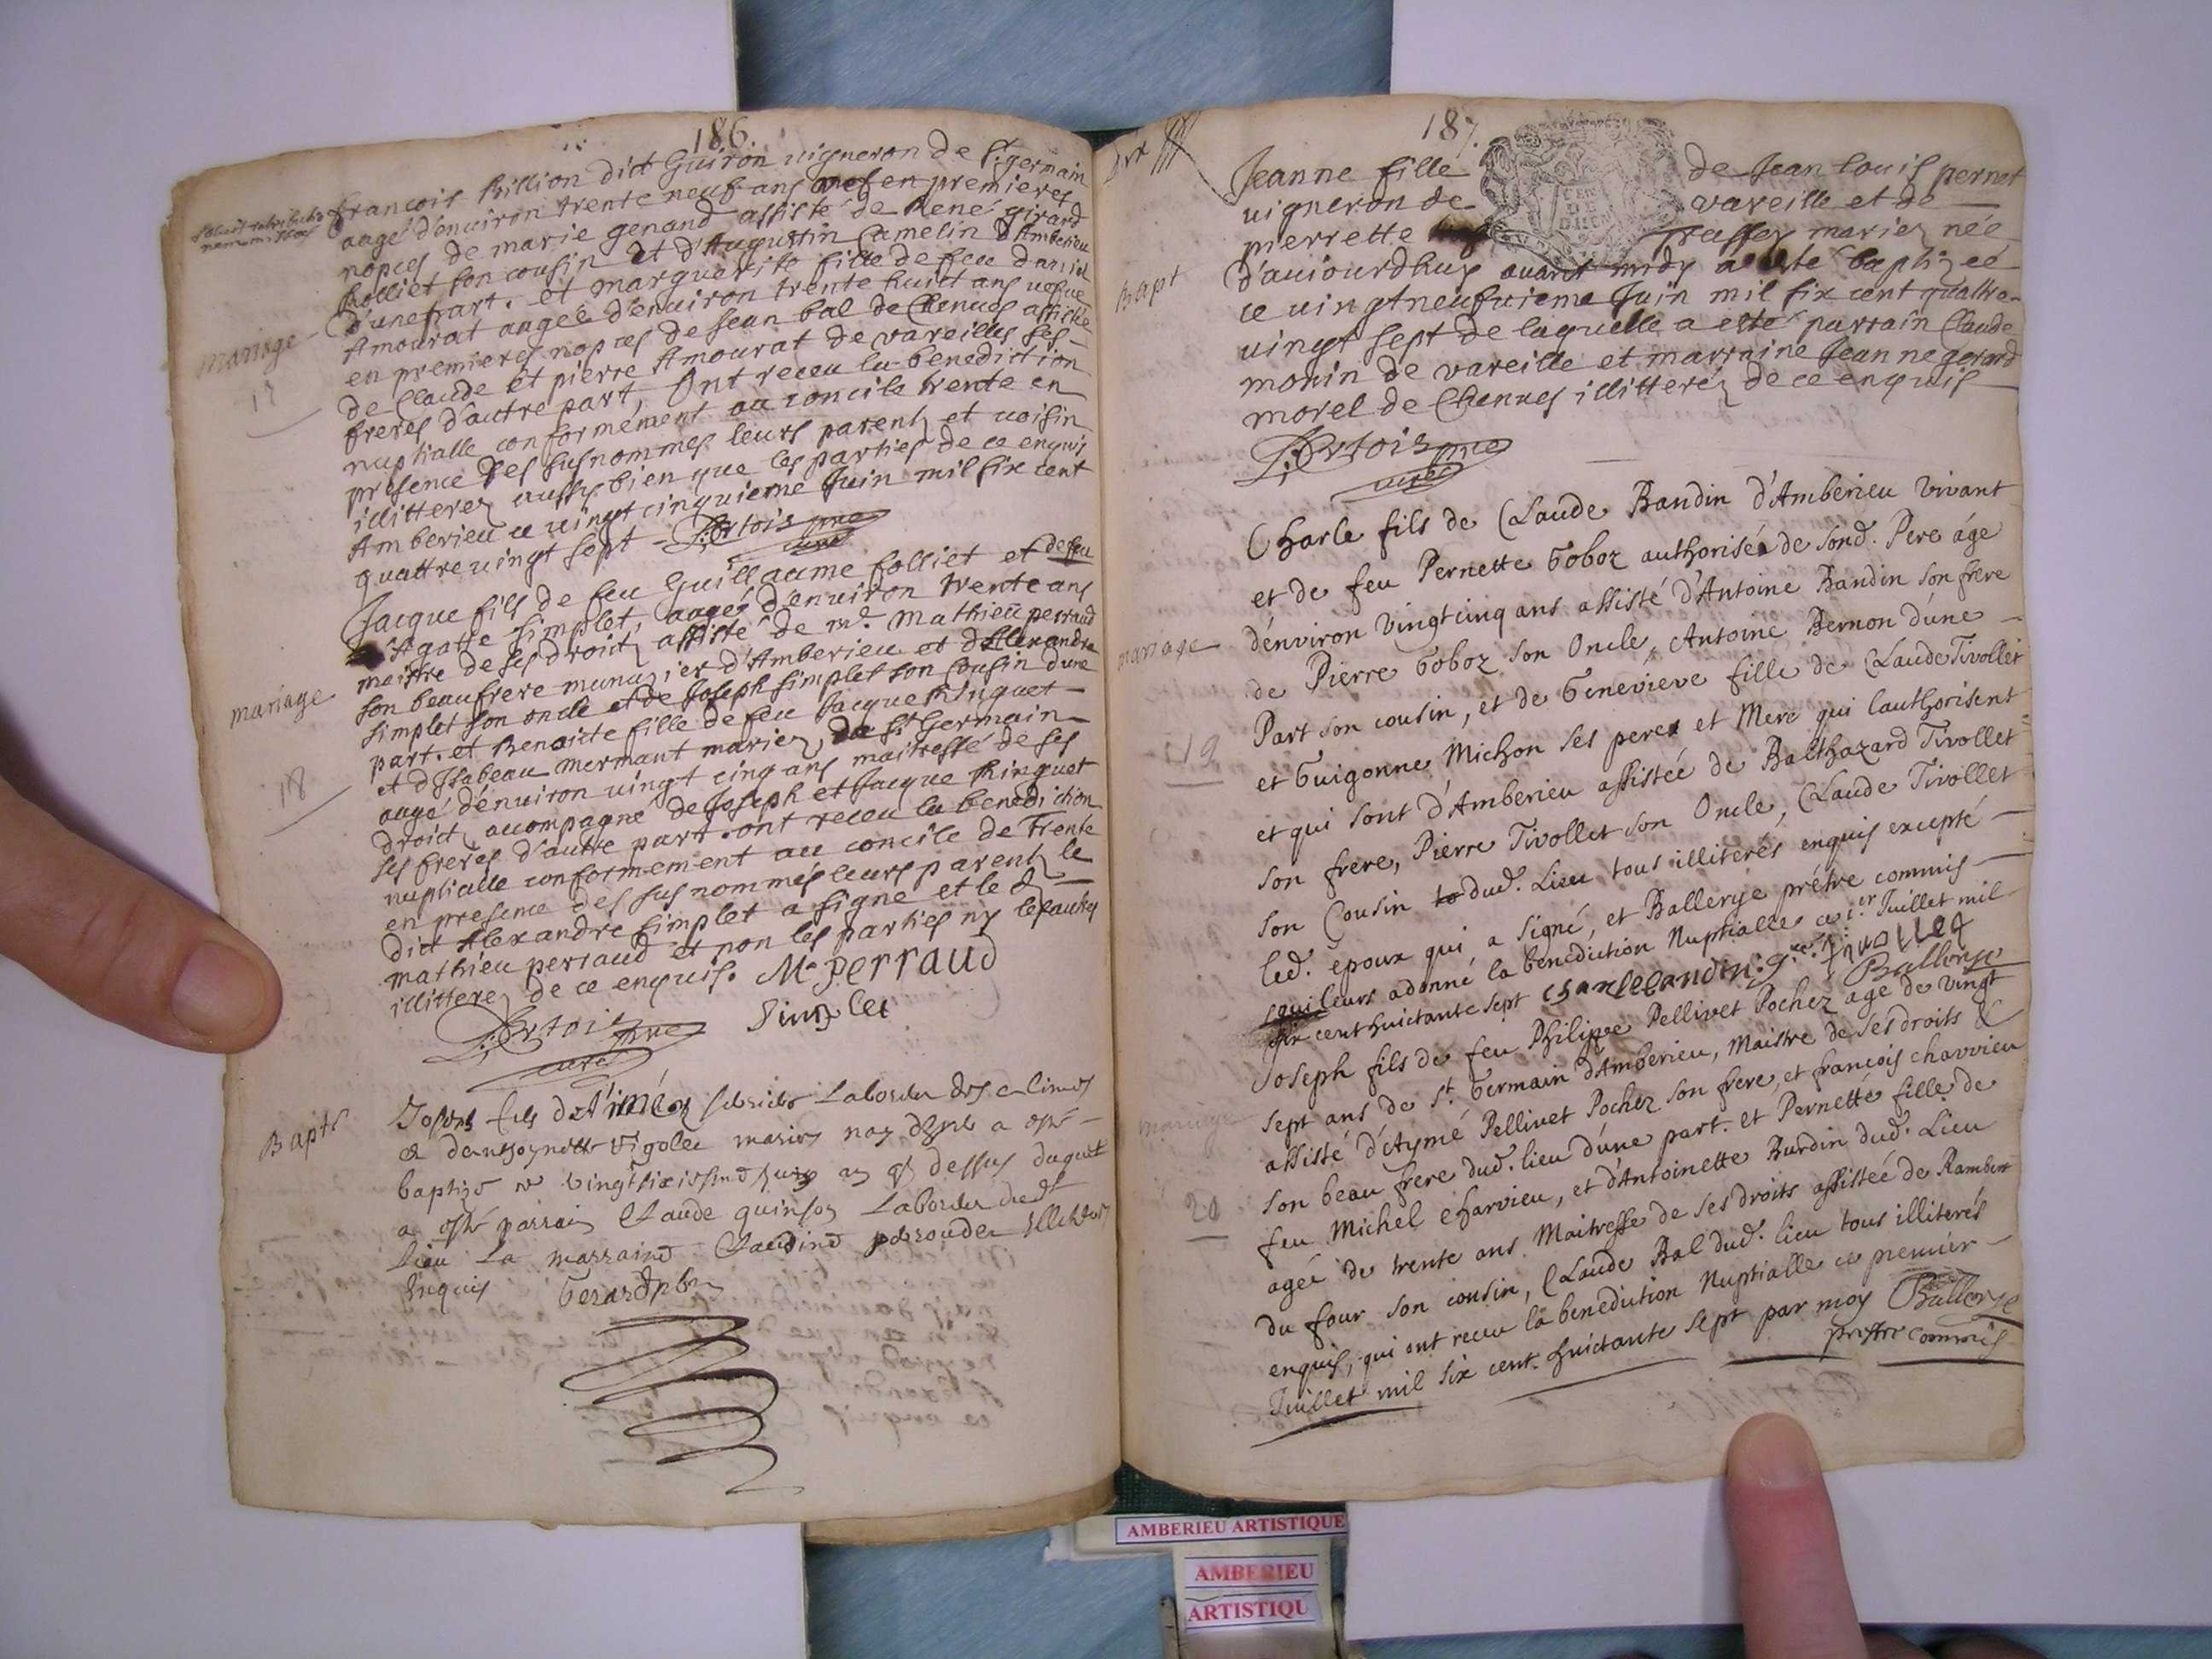 186.
francois Rillion dict Guiron vigneron de St. germain
aagé d'environ trente neuf ans vef en premieres
nopces de marie genand assisté de René girard
folliet son cousin et d'Augustin Camelin d'Amberieu
d'une part. et marguerite fille de feu daniel
Amourat aagée d'environ trente huict ans vefve
en premieres nopces de Jean bal de Chenves assistée
de Claude et pierre Amourat de vareilles ses
freres d'autre part, Ont receu la benediction
nuptialle conformément au concile trente en
presence des susnommes leurs parents et voisin
illitterez aussy bien que les parties de ce enquis
Amberieu ce vingt cinquieme Juin mil six cent
quattre vingt sept
curé
mariage
Jacque fils de feu Guillaume folliet et de feu
Agathe Simplet, aagé d'environ trente ans
maistre de ses droicts assisté de mr. Mathieu perraud
son beaufrere munuzier d'Amberieu et d'Alexandre
Simplet son oncle et de Joseph Simplet son Cousin d'une
part. et Benoicte fille de feu Jacque Ringuet
et d'Isabeau mermant mariez de St Germain
aagé d'environ vingt cinq ans maitresse de ses
droicts accompagné de Joseph et Jacque Ringuet
ses freres d'autre part. ont receu la benediction
nuptialle conformement au concile de Trente
en presence des susnommés leurs parents le
dict Alexandre Simplet a signe et le d
mathieu perraud et non les parties ny les autres
illitterez de ce enquis. M. Perraud
Simplet
curé
mariage
18
Bapte
Joseph fils d'Aimé Laborieu des
et d'anthoynette Vigolet mariez nay a esté
baptizé ce vingt sixiesme Juin an q dessus duquel
a esté parrain Claude guinson Laboureur dudt
lieu La marraine Claudine
Enquis Gerard pbre
187.
Bapt
Jeanne fille de Jean louis pernet
vigneron de vareille et de
pierrette mariez née
d'aujourdhuy avant midy a esté baptizeé
ce vingtneufvieme Juin mil six cent quattre
vingt sept de laquelle a esté parrain Claude
monin de vareille et marraine Jeanne gerard
morel de Chenves illitterez de ce enquis
curé
mariage
19
Charle fils de Claude Bandin d'Amberieu vivant
et de feu Pernette Goboz authorisée de sond. Pere âge
d'environ vingt cinq ans assisté d'Antoine Bandin son frere
de Pierre Goboz son Oncle, Antoine Bernon d'une
Part son cousin, et de Genevieve fille de Claude Tivollet
et Guigonne Michon ses peres et Mere qui lauthorisent
et qui sont d'Amberieu assistée de Balthazard Tivollet
son frere, Pierre Tivollet son Oncle, Claude Tivollet
son Cousin dud. Lieu tous illiterés enquis excepté
led. epoux qui a signé, et Ballerye prêtre commis
qui leurs a donné la benediction Nuptialle ce 1.er Juillet mil
six cent huictante sept
Ballerye
mariage
20
Joseph fils de feu Philippe Pellivet Pochez age de vingt
sept ans de St. Germain d'Amberieu, Maistre de ses droits &
assisté d'Aymé Pellivet Pochez son frere, et francois charvieu
son beau frere dud. lieu d'une part. et Pernette fille de
feu Michel charvieu, et d'Antoinette Burdin dud. Lieu
ageé de trente ans Maitresse de ses droits assistée de Rambert
du four son cousin, Claude Bal dud. lieu tous illiterés
enquis, qui ont receu la benediction Nuptialle ce premier
Juillet mil six cent. huictante sept par moy Ballerye
prestre commis
AMBERIEU ARTISTIQUE
AMBERIEU
ARTISTIQU